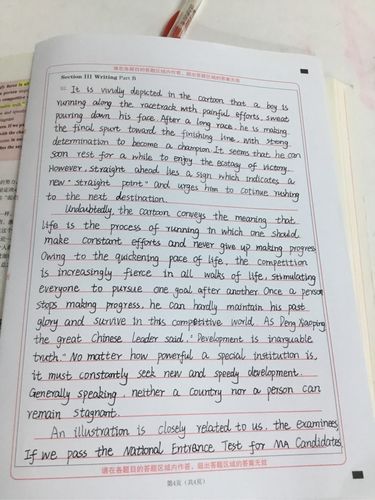 请在各题目的答题区域内作答，超出答题区域的答案无效
Section III Writing Part B
52. It is vividly depicted in the cartoon that a boy is
running along the racetrack with painful efforts, sweat
pouring down his face. After a long race, he is making
the final spurt toward the finishing line, with strong
determination to become a champion. It seems that he can
soon rest for a while to enjoy the ecstasy of victory.
However, straight ahead lies a sign which indicates a
new "straight point" and urges him to cotinue rushing
to the next destination.
Undoubtedly, the cartoon conveys the meaning that
life is the process of running in which one should
make constant efforts and never give up making progress
Owing to the quickening pace of life, the competition
is increasingly fierce in all walks of life, stimulating
everyone to pursue one goal after another. Once a person
stops making progress, he can hardly maintain his past
glory and survive in this competitive world. As Deng Xiaoping
the great Chinese leader said, "Development is inarguable
truth." No matter how powerful a special institution is,
it must constantly seek new and speedy development.
Generally speaking, neither a country nor a person can
remain stagnant.
An illustration is closely related to us, the examinees
If we pass the National Entrance Test for MA Candidates
请在各题目的答题区域内作答，超出答题区域的答案无效
第4页（共4页）